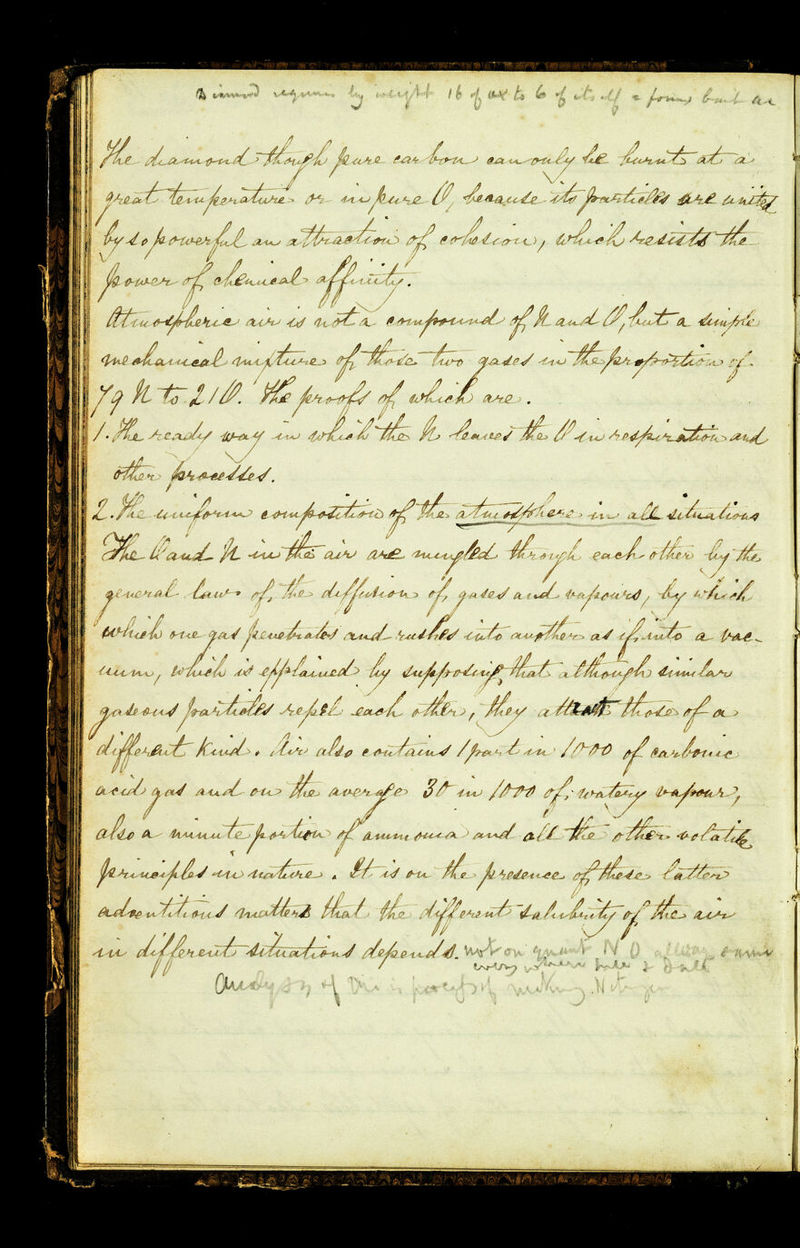 Diamond requires by weight 16 of ox to 6 of itself = forms
The diamond though pure carbon can only be burnt at a
great temperature or in pure O, because its particles are united
by so powerful an attraction of cohesion, which resists the
power of chemical affinity.
Atmospheric air is not a compound of N and O, but a simple
mechanical mixture of those two gases in the proportion of
79 N to 21 O. The proofs of which are.
1. The ready way in which the N leaves the O in respiration and
other processes.
2. The uniform composition of the atmosphere in all situations
The O and N in the air are mingled through each other by the
general law of, the diffusion of, gases and vapours, by which
which one gas penetrates and rushes into another as if, into a vac-
uum, which is explained by supposing, that although similar
gaseous particles repel each other, they attract those of a
different kind. Air also contains 1 part in 1000 of carbonic
acid gas and on the average 30 in 1000 of, watery vapour,
also a minute portion of ammonia and all the other volatile
principles in nature. It is on the presence of these latter
adventitious matters that the different salubrity of the air
in different situations depends. not on quant N O allway same
every where
Analysis of this is process of making Nitrogen